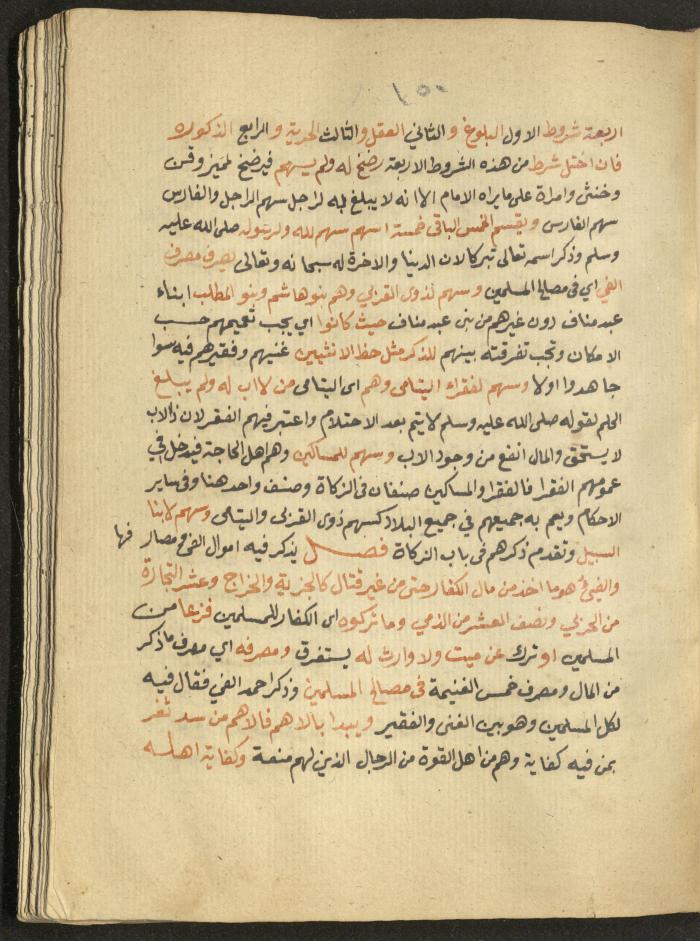 ١٥٠
اربعة شروط الاول البلوغ والثاني العقل والثالث الحرية والرابع الذكورة
فان اختل شرط من هذه الشروط الاربعة رضخ له ولم يسهم فيرضخ لمميز وقن
وخنثى وامراة على ما يراه الامام الا انه لا يبلغ به لراجل سهم الراجل والفارس
سهم الفارس ويقسم الخمس الباقي خمسة اسهم سهم لله ولرسوله صلى الله عليه
وسلم وذكر اسمه تعالى تبركا لان الدنيا والاخرة له سبحانه وتعالى يصرف مصرف
الفي اي في مصالح المسلمين وسهم لذوي القربي وهم بنو هاشم وبنو المطلب ابناء
عبد مناف دون غيرهم من بني عبد مناف حيث كانوا اي يجب تعميمهم حسب
الامكان وتجب تفرقته بينهم للذكر مثل حظ الانثيين غنيهم وفقيرهم فيه سوا
جاهدوا اولا وسهم لفقراء اليتامى وهم اي اليتامى من لا اب له ولم يبلغ
الحلم لقوله صلى الله عليه وسلم لا يتم بعد الاحتلام واعتبر فيهم الفقر لان ذا الاب
لا يستحق والمال انفع من وجود الاب وسهم للمساكين وهم اهل الحاجة فيدخل في
عمومهم الفقرا فالفقرا والمساكين صنفان في الزكاة وصنف واحد هنا وفي ساير
الاحكام ويعم به جميعهم في جميع البلاد كسهم ذوي القربى واليتامى وسهم لابنا
السبيل وتقدم ذكرهم في باب الزكاة فصل يذكر فيه اموال الفي ومصارفها
والفيء هو ما اخذ من مال الكفار حتى من غير قتال كالجزية والخراج وعشر التجارة
من الحربي ونصف العشر من الذمي وما تركوه اي الكفار للمسلمين فزعا من
المسلمين او ترك عن ميت ولا وارث له يستغرق ومصرفه اي مصرف ما ذكر
من المال ومصرف خمس الغنيمة في مصالح المسلمين وذكر احمد الفي فقال فيه
لكل المسلمين وهو بين الغني والفقير ويبدا بالاهم فالاهم من سد ثغر
بمن فيه كفاية وهم من اهل القوة من الرجال الذين لهم منعة وكفاية اهله